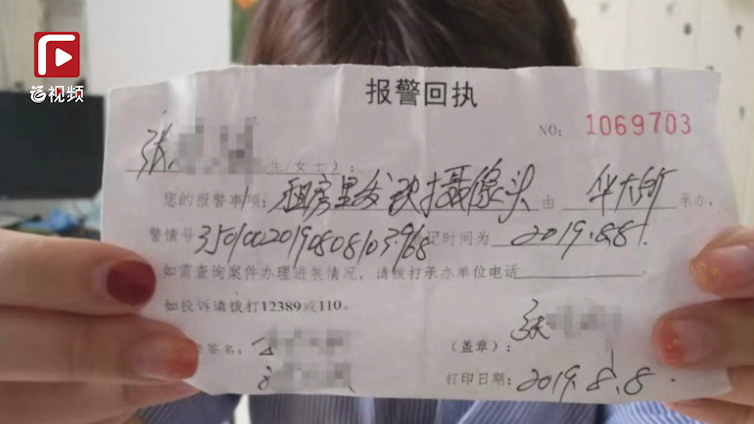 视频
报警回执
NO: 1069703
张
生/女士):
您的报警事项: 租房里发现摄像头 由 华大所 承办,
警情号 35010020190808103968 登记时间为 2019.8.8.
如需查询案件办理进展情况,请拨打承办单位电话
如投诉请拨打12389或110。
签名:
(盖章):
打印日期: 2019.8.8.